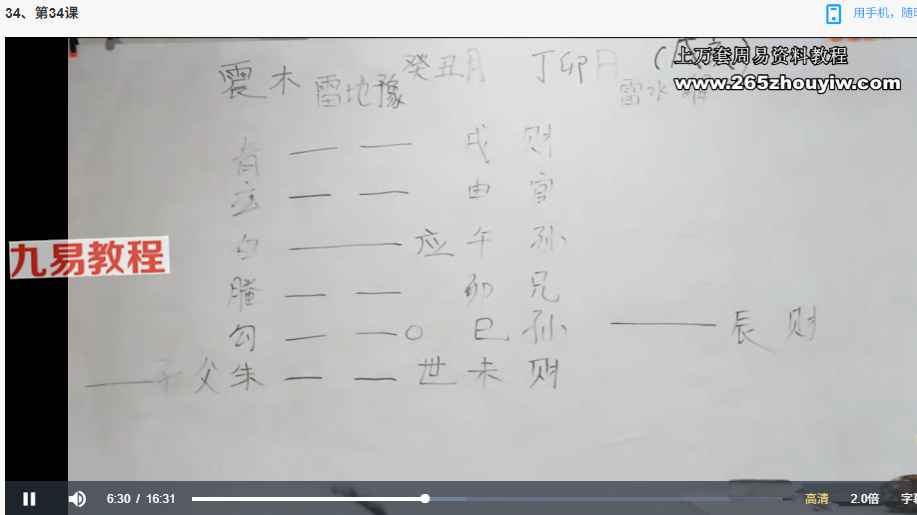 34、第34课
用手机，随时
上万套周易资料教程
www.265zhouyiw.com
震木 雷地豫 癸丑月 丁卯日
雷水解
青 — — 戌 财
玄 — — 申 官
白 —— 应 午 孙
九易教程
螣 — — 卯 兄
勾 — — ○ 巳 孙 —— 辰 财
—— 子 父 朱 — — 世 未 财
6:30 / 16:31
高清
2.0倍
字幕